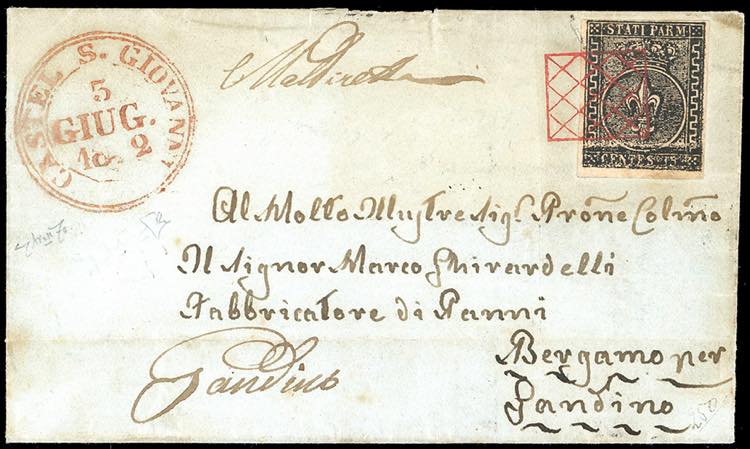 CASTEL S. GIOVANNI
5
GIUG.
STATI PARM.
CENTES. 15
Al Molto Illustre Sigr. Prone Colmo
Il Signor Marco Ghirardelli
Fabbricatore di Panni
Bergamo per
Gandino
Gandino
250